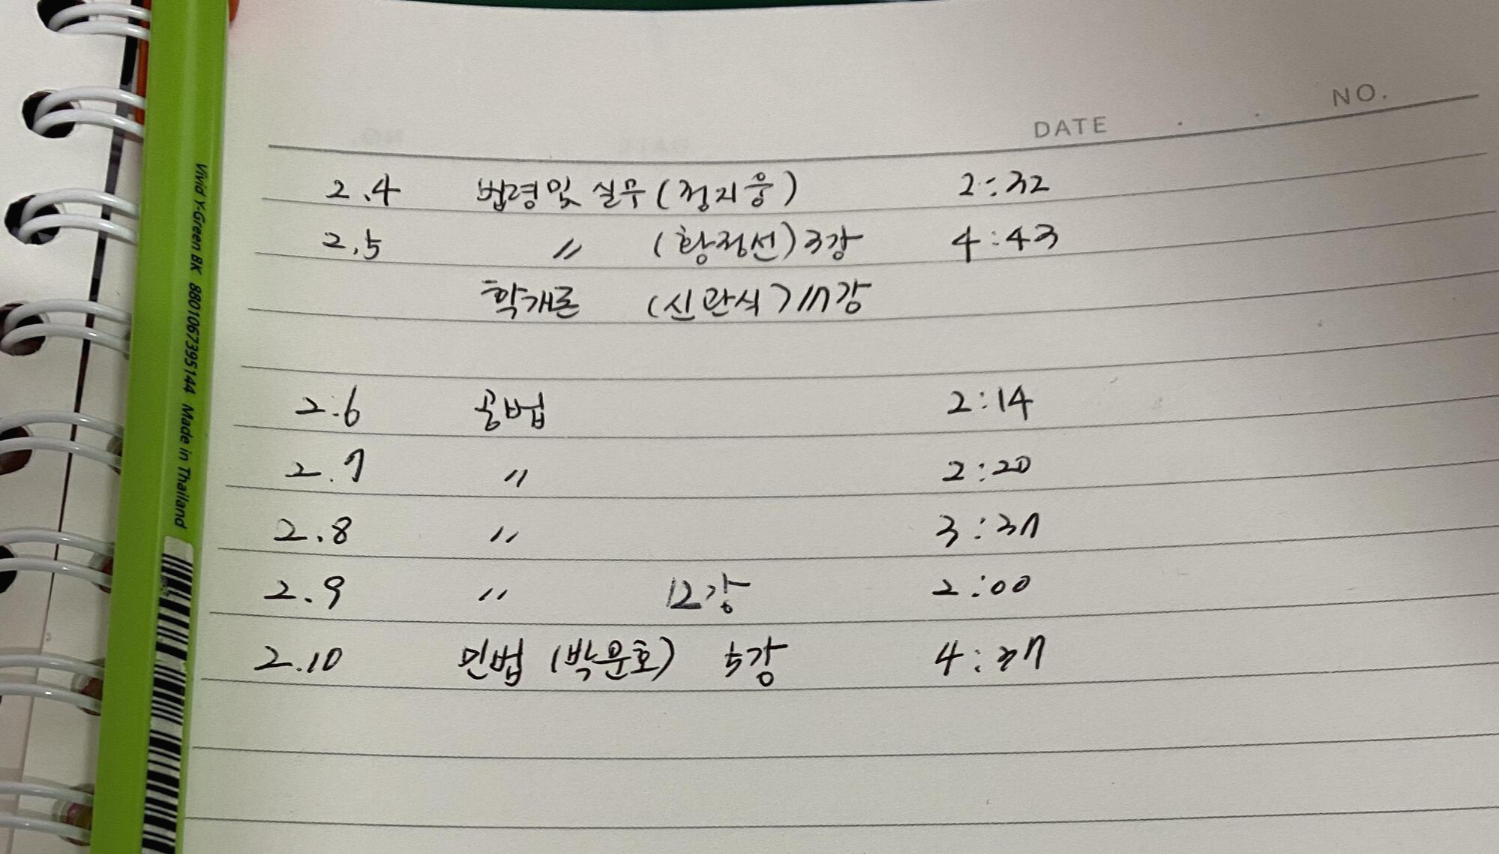 DATE . . NO.
2.4 법령및 실무 (정지웅) 2:32
2.5 〃 (황정선) 3강 4:43
학개론 (신관식) 17강
2.6 공법 2:14
2.7 〃 2:20
2.8 〃 3:37
2.9 〃 12강 2:00
2.10 민법 (박문호) 5강 4:37
Vivid Y-Green BK 8801067395144 Made in Thailand